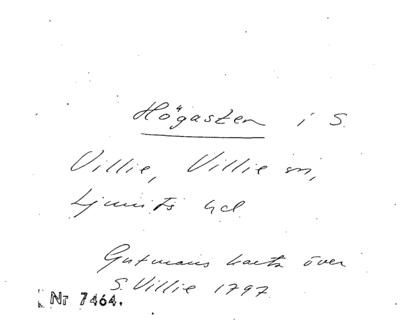 Högasten i S.
Villie, Villie sn,
Ljunits hd
Gutmans karta över
S. Villie 1797
Nr 7464.